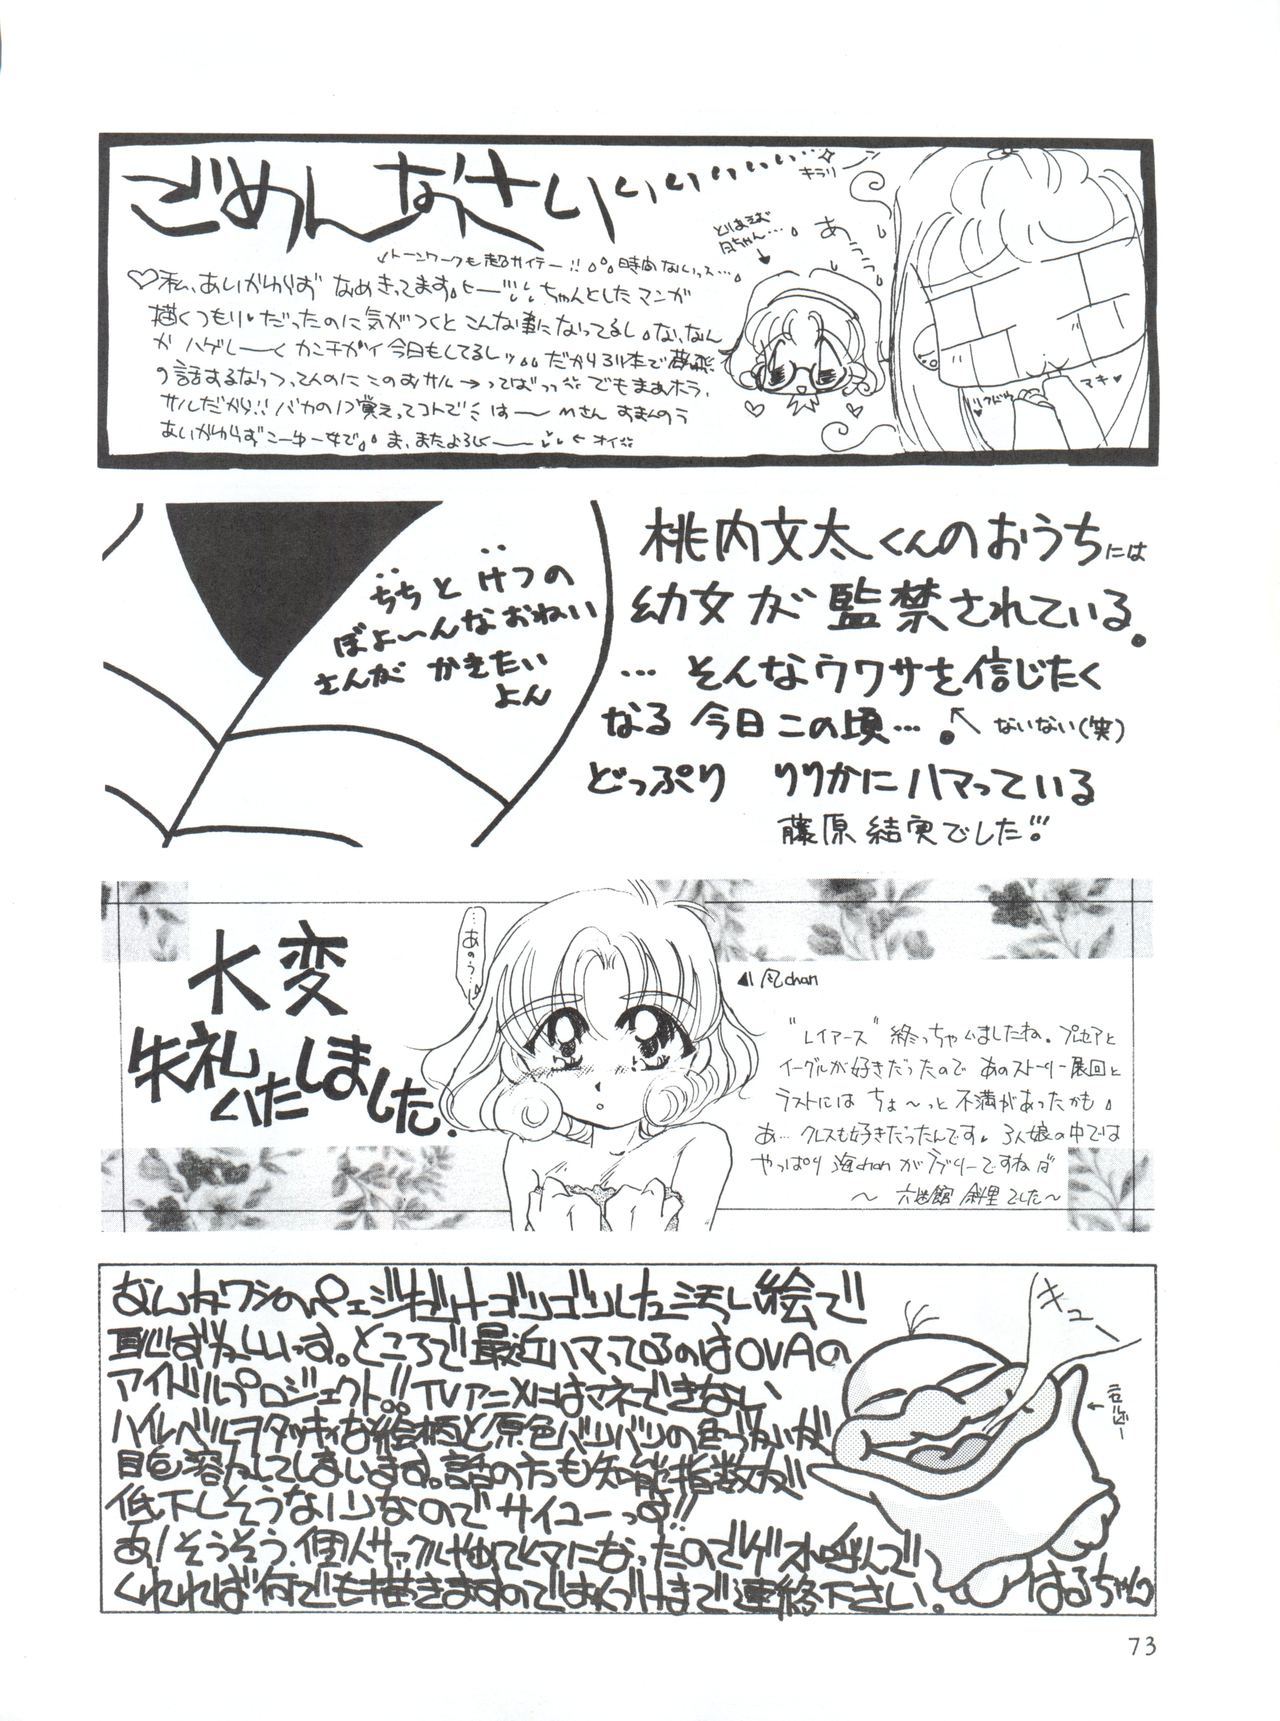 ごめんなさいぃぃぃ
キラリ
あららら
とりあえず
↙トーンワークも超サイテー!!。。。時間ないっス…。
♡私、あいかわらずなめきってます。ちゃんとしたマンガ
描くつもり♥だったのに気がつくとこんな事になってるし。な、なん
か ハゲしーく カンチガイ 今日もしてるしッ。。だから
の話するなっつってんのにこのおサル→ってばっっ でもまあホラ、
サルだから!!バカの1つ覚えってコトで は〜Mさん すまんのう
あいかわらずこーゆー女で。ま、またよろしくー ←オイ
マキ♥
ちちと けつの
ぼよ〜んなおねい
さんが かきたい
よん
桃内文太くんのおうちには
幼女が監禁されている。
…そんなウワサを信じたく
なる今日この頃…。
ないない(笑)
どっぷり りりかにハマっている
藤原結実でした!!
大変
失礼
いたしました.
…あのう…
◀風chan
"レイアース"終っちゃいましたね。プレセアと
イーグルが好きだったので あのストーリー展回と
ラストには ちょ〜っと 不満があったかも。
あ…クレスも好きだったんです。3人娘の中では
やっぱり 海chanがラブリーですねば
なんかワシのペェジだけゴリゴリした汚い絵で
恥ずかしいっす。ところで最近ハマってるのはOVAの
アイドルプロジェクト!!TVアニメにはマネできない
ハイレベルヲタッキィな絵柄と原色バリバリの色づかいが
目を溶かしてしまいます。話の方も知能指数が
低下しそうなノリなのでサイコーっす!!
あ!そうそう、個人サークルやめてヒマになったのでゲスト呼んで
くれれば何でも描きますのではんづけまで連絡下さい。
キュー
ニセルビー
はるちゃん
73